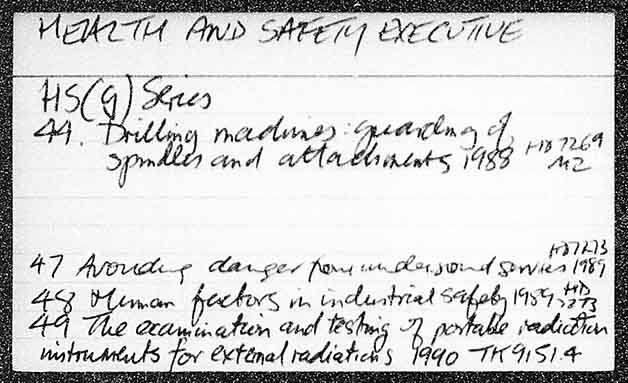 HEALTH AND SAFETY EXECUTIVE
HS(G) Series
44. Drilling machines: guarding of
spindles and attachments 1988 HD7269
M2
HD7273
47 Avoiding danger from underground services 1989
48 Human factors in industrial safety 1989 HD
7273
49 The examination and testing of portable radiation
instruments for external radiations 1990 TK9151.4